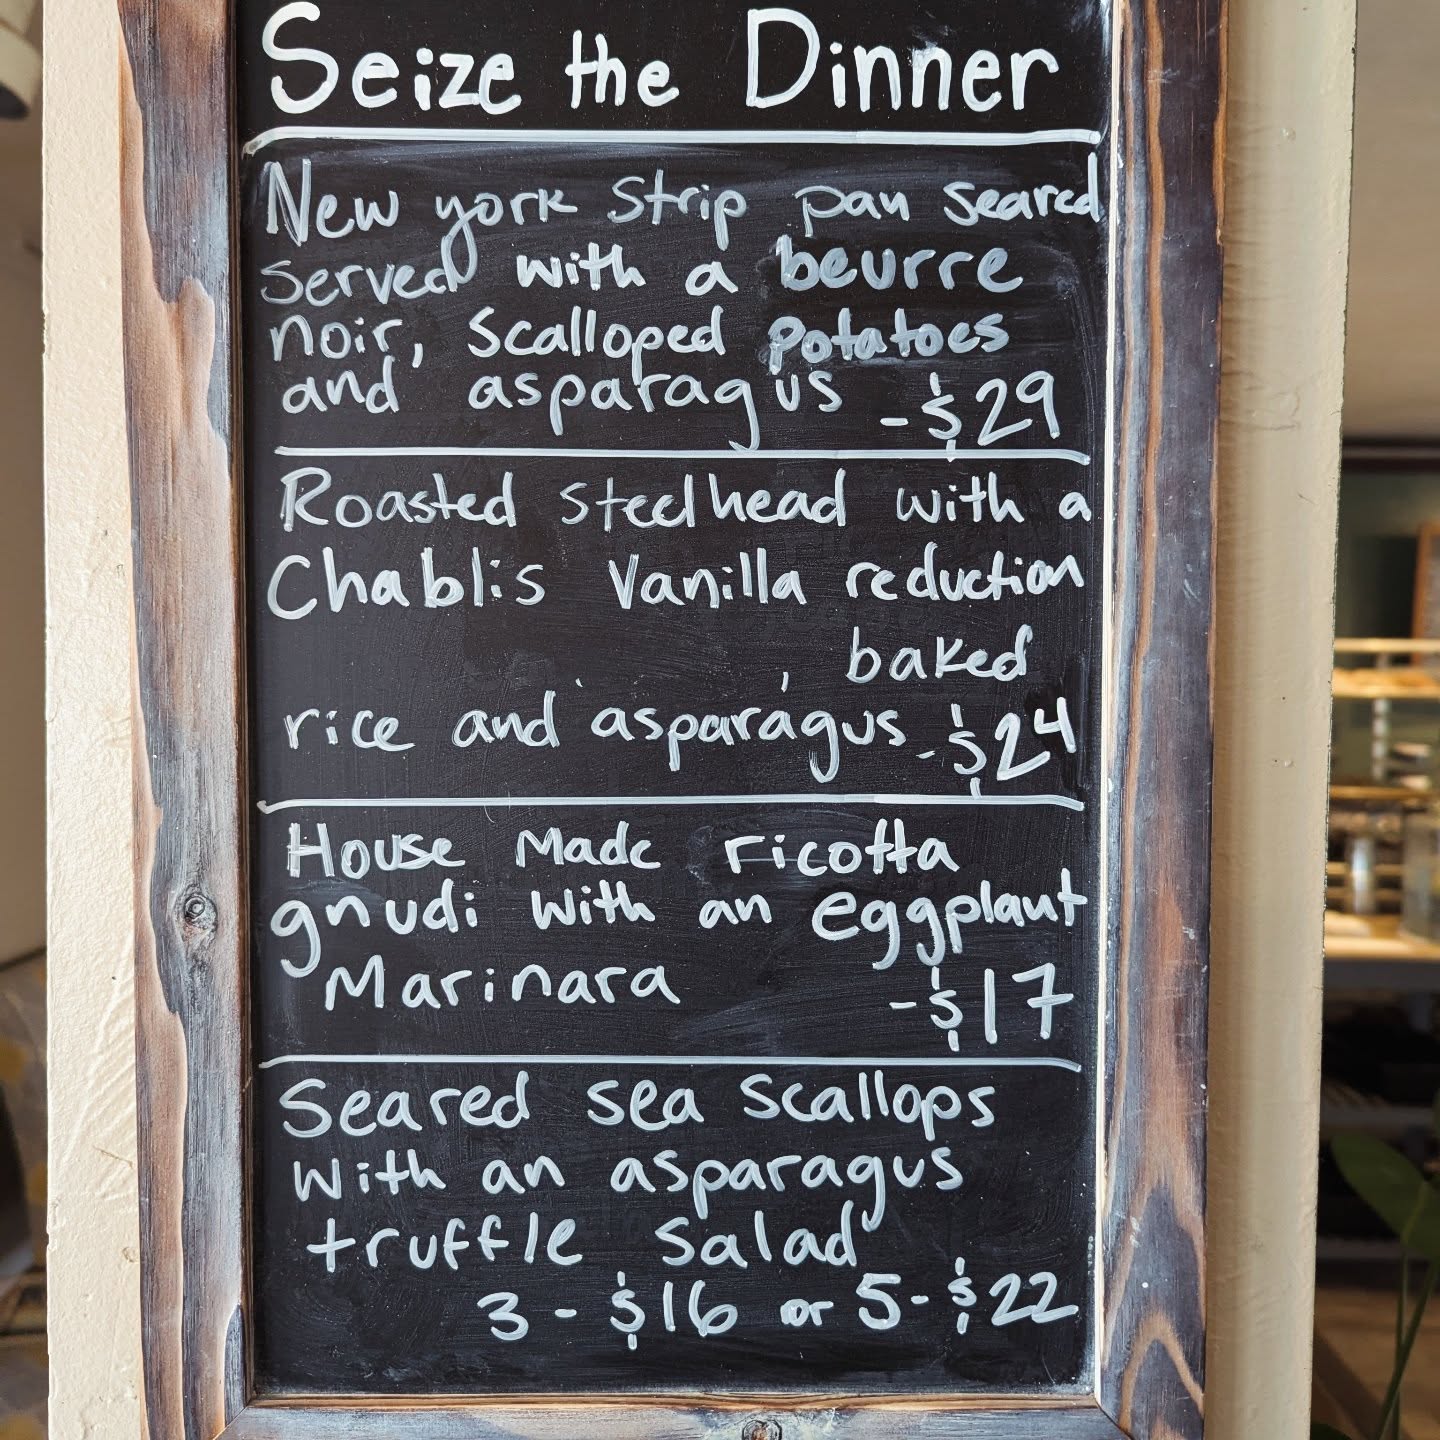 Seize the Dinner
New york Strip pan seared
served with a beurre
noir, scalloped potatoes
and asparagus -$29
Roasted steelhead with a
Chablis Vanilla reduction
, baked
rice and asparagus -$24
House Made ricotta
gnudi with an eggplant
Marinara -$17
Seared sea scallops
with an asparagus
truffle salad
3 - $16 or 5 - $22